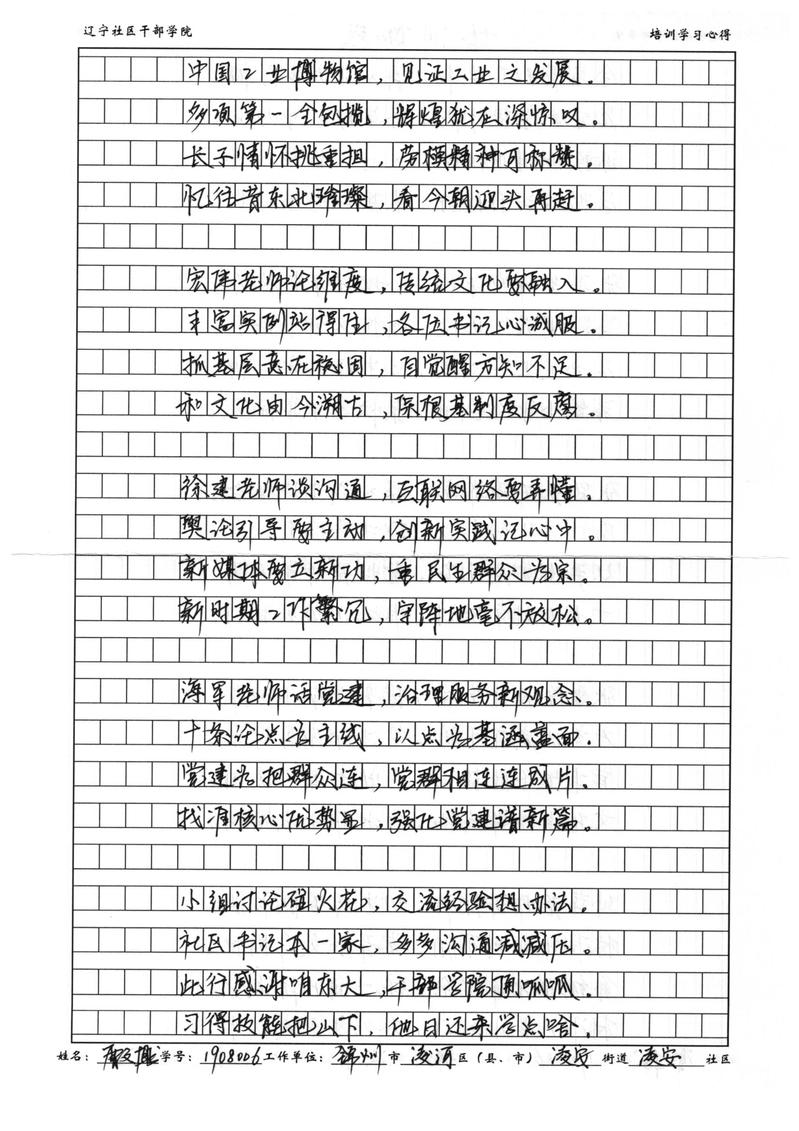 辽宁社区干部学院 培训学习心得
中国工业博物馆，见证工业之发展。
多项第一全包揽，辉煌犹在深惊叹。
长子情怀挑重担，劳模精神可称赞。
忆往昔东北璀璨，看今朝迎头再赶。
宏伟老师论维度，传统文化要融入。
丰富实例站得住，各位书记心诚服。
抓基层意在稳固，自觉醒方知不足。
和文化由今溯古，保根基制度反腐。
徐建老师谈沟通，互联网络要弄懂。
舆论引导要主动，创新实践记心中。
新媒体要立新功，重民生群众为宗。
新时期工作繁冗，守阵地毫不放松。
海军老师话党建，治理服务新观念。
十条论点为主线，以点为基涵盖面。
党建为把群众连，党群相连连成片。
找准核心优势显，强化党建谱新篇。
小组讨论碰火花，交流经验想办法。
社区书记本一家，多多沟通减减压。
此行感谢咱东大，干部学院顶呱呱。
习得技能把山下，他日还来学点啥。
姓名： 学号：1908006 工作单位：锦州 市 凌河 区（县、市） 凌安 街道 凌安 社区